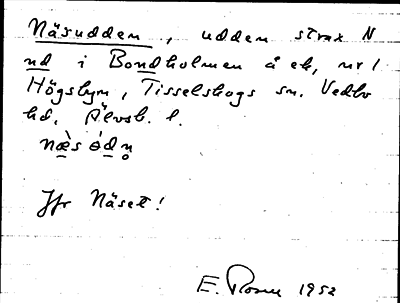 Näsudden, udden strax N
nd i Bondholmen å ek, nr 1
Högsbyn, Tisselskogs sn. Vedbo
hd. Älvsb. l.
næ̀s ódn̥
Jfr Näset!
E. 1952